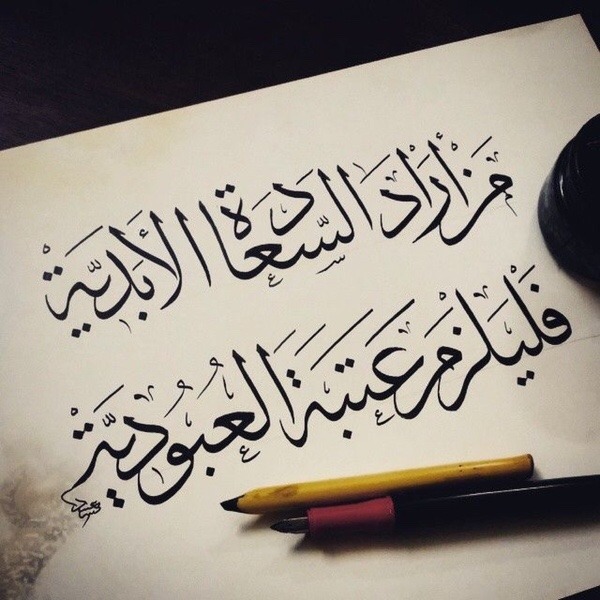 مَنْ أَرَادَ السَّعَادَةَ الأَبَدِيَّةَ
فَلْيَلْزَمْ عَتَبَةَ العُبُودِيَّةِ